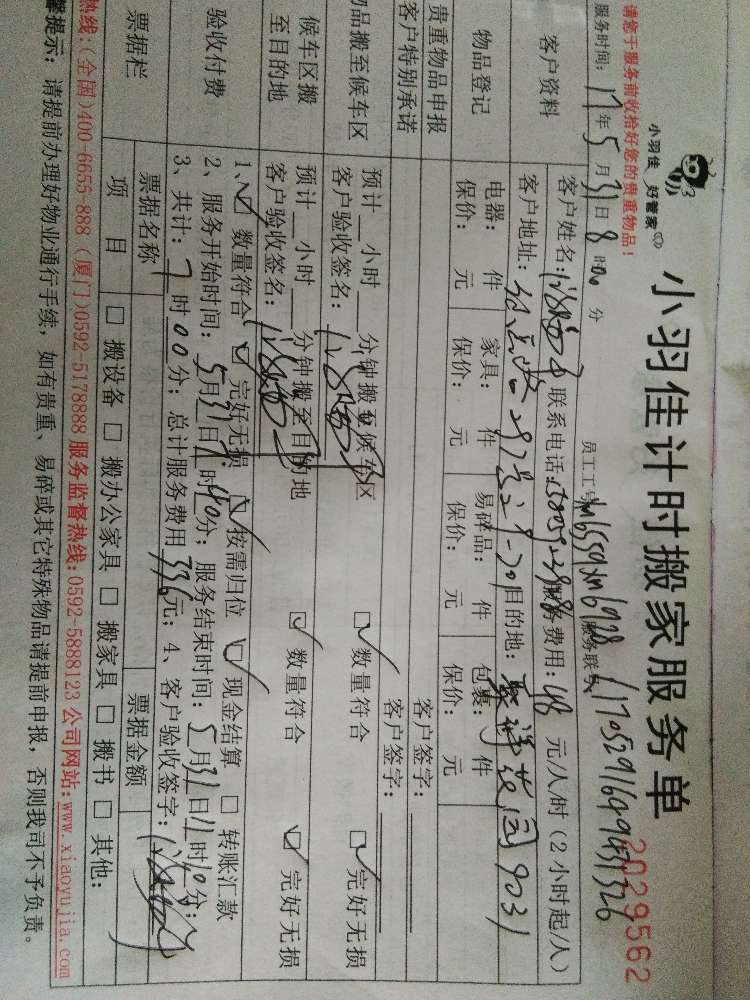 小羽佳 好管家
小羽佳计时搬家服务单
2029562
请您于服务前收拾好您的贵重物品!
服务时间: 17年5月31日8时00分 员工工号 服务联号
客户资料 客户姓名: 联系电话: 服务费用:48元/人/时(2小时起/人)
客户地址: 目的地: 9031
物品登记 电器: 件 家具: 件 易碎品: 件 包裹: 件
保价: 元 保价: 元 保价: 元 保价: 元
贵重物品申报 客户签字:
客户特别承诺 客户签字:
物品搬至候车区 预计__小时__分钟搬至候车区
客户验收签名: ☑数量符合 ☑完好无损
候车区搬至目的地 预计__小时__分钟搬至目的地
客户验收签名: ☑数量符合 ☑完好无损
验收付费 1、☑数量符合 ☑完好无损 ☑按需归位 ☑现金结算 □转账汇款
2、服务开始时间: 5月31日 时40分; 服务结束时间: 5月31日11时40分;
3、共计: 7时00分; 总计服务费用336元; 4、客户验收签字:
票据栏 票据名称 票据金额
项目 □搬设备 □搬办公家具 □搬家具 □搬书 □其他:
热线:(全国)400-6655-888 (厦门)0592-5178888 服务监督热线:0592-5888123 公司网站:www.xiaoyujia.com
馨提示: 请提前办理好物业通行手续, 如有贵重、易碎或其它特殊物品请提前申报, 否则我司不予负责。